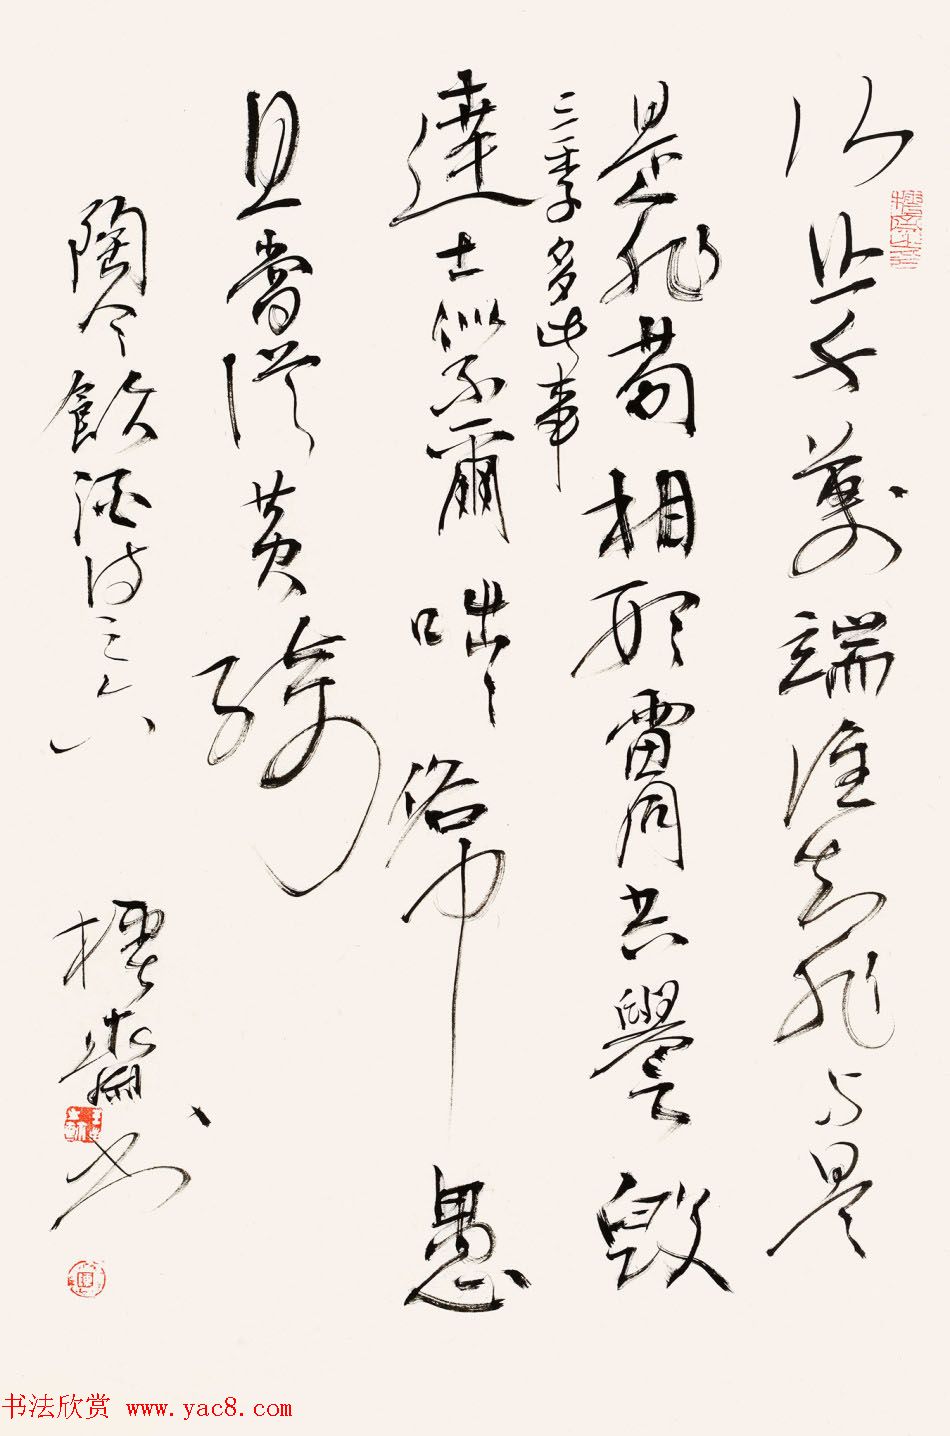 行止千萬端誰知非与是
是非苟相形雷同共譽毀
三季多此事
達士似不爾咄咄俗中愚
且當從黃綺
陶令飲酒詩之六
齋书
书法欣赏 www.yac8.com